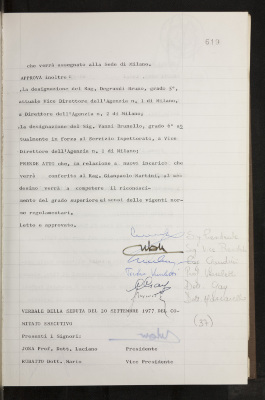 619
che verrà assegnato alla Sede di Milano.
APPROVA inoltre
.la designazione del Rag. Degranzi Bruno, grado 5°,
attuale Vice Direttore dell'Agenzia n. 1 di Milano,
a Direttore dell'Agenzia n. 1 di Milano;
.la designazione del Sig. Vanni Brunello, grado 6° at
tualmente in forza al Servizio Ispettorato, a Vice
Direttore dell'Agenzia n. 1 di Milano;
PRENDE ATTO che, in relazione a nuovo incarico che
verrà conferito al Rag. Giancarlo Martini, al me
desimo verrà a competere il riconosci-
mento del grado superiore ai sensi delle vigenti nor-
me regolamentari.
Letto e approvato.
(87)
VERBALE DELLA SEDUTA DEL 20 SETTEMBRE 1977 DEL CO-
MITATO ESECUTIVO
Presenti i Signori:
JONA Prof. Dott. Luciano Presidente
RIBALTO Dott. Mario Vice Presidente